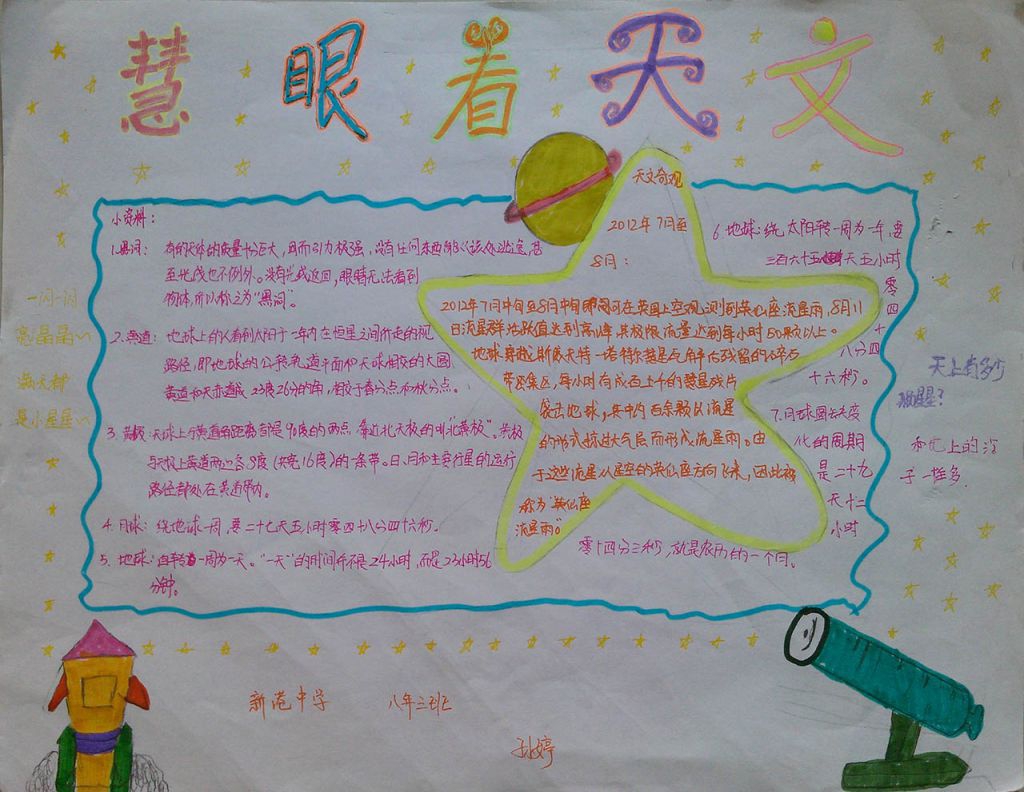 慧眼看天文
小资料：
1.黑洞： 有的天体的质量十分巨大，因而引力极强，没有任何东西能从该处逃逸，甚
至光线也不例外。没有光线返回，眼睛无法看到
物体，所以称之为"黑洞"。
2.黄道： 地球上的人看到太阳于一年内在恒星之间所走的视
路径，即地球的公转轨道平面和天球相交的大圆
黄道和天赤道成 23度26分的角，相交于春分点和秋分点。
3. 黄极：天球上与黄道角距离都是90度的两点 靠近北天极的叫"北黄极"。黄极
与天极上黄道两边各8度(共宽16度)的一条带。日、月和主要行星的运行
路径都处在黄道带内。
4. 月球： 绕地球一周，要二十七天五小时零四十八分四十六秒。
5. 地球：自转一周为一天。"一天"的时间并不是24小时，而是23小时56
分钟。
天文奇观
2012年7月至
8月：
2012年7月中旬至8月中旬即可在英国上空观测到英仙座流星雨，8月11
日流星群活跃值达到高峰 其极限流量达到每小时50颗以上。
地球穿越斯威夫特—塔特尔彗星左肩平右残留的碎石
带密集区，每小时有成百上千的彗星残片
袭击地球，其中百余颗以流星
的形式掠过大气层而形成流星雨。由
于这些流星从星空的英仙座方向飞来，因此被
称为"英仙座
流星雨"。
6. 地球：绕太阳转一周为一年，要
三百六十五天五小时
零四十
八分四
十六秒。
7.月球圆缺变
化的周期
是二十九
天十二
小时
零十四分三秒，就是农历的一个月。
一闪一闪
亮晶晶～
满天都
是小星星～
天上有多少
颗星星？
和地上的沙
子一样多.
新港中学 八年三班
孙婷